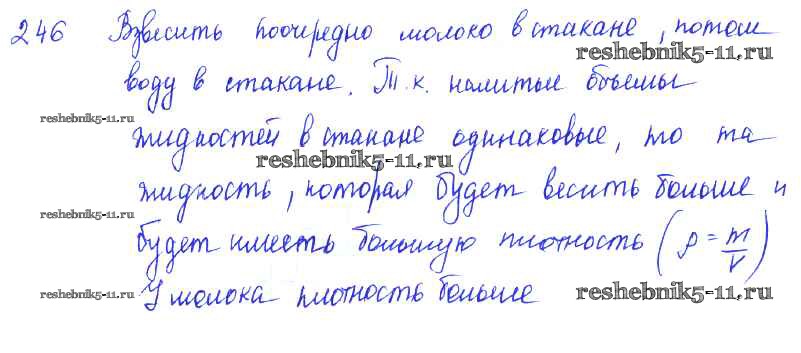 246 Взвесить поочередно молоко в стакане, потом
reshebnik5-11.ru
воду в стакане. Т.к. налитые объемы
reshebnik5-11.ru
жидкостей в стакане одинаковые, то та
reshebnik5-11.ru
жидкость, которая будет весить больше и
reshebnik5-11.ru
будет иместь большую плотность (ρ = m/V)
У молока плотность больше
reshebnik5-11.ru
reshebnik5-11.ru